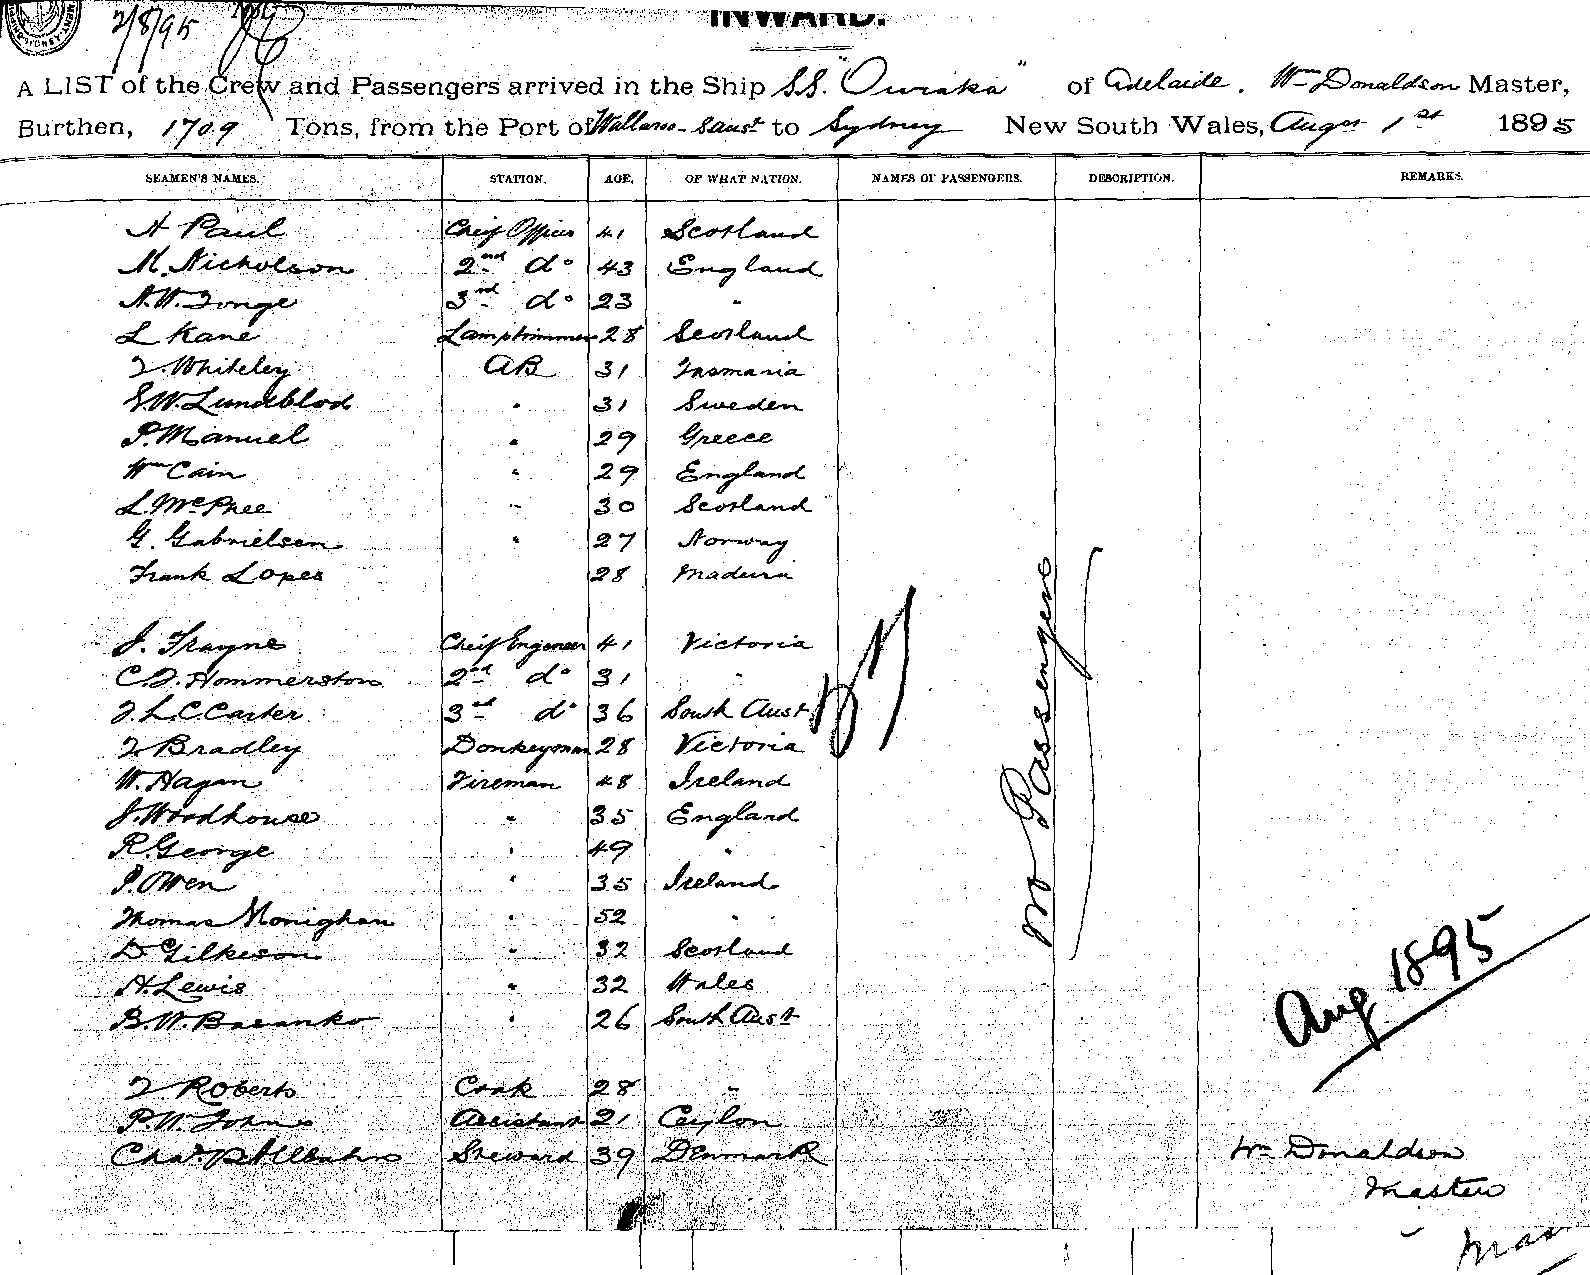 2/8/95
INWARD.
A LIST of the Crew and Passengers arrived in the Ship SS. "Owraka" of Adelaide. Wm Donaldson Master,
Burthen, 1709 Tons, from the Port of Wallaroo - Saust to Sydney New South Wales, Augst 1st 1895
SEAMEN'S NAMES. STATION. AGE. OF WHAT NATION. NAMES OF PASSENGERS. DESCRIPTION. REMARKS.
A Paul Cheif Officer 41 Scotland
M. Nicholson 2nd do 43 England
N.W. Tonge 3rd do 23 "
L Kane Lamptrimmer 28 Scotland
T. Whiteley AB 31 Tasmania
E.W. Lundblod " 31 Sweden
P. Manuel " 29 Greece
Wm Cain " 29 England
L. McPhee " 30 Scotland
G. Gabrielsen " 27 Norway
Frank Lopes 28 Madeira
J. Frayne Cheif Engeneer 41 Victoria
C.D. Hommerston 2nd do 31 "
T.L.C. Carter 3rd do 36 South Aust
T Bradley Donkeyman 28 Victoria
W. Hagan Fireman 48 Ireland
J. Woodhouse " 35 England
R. George " 49 "
P. Owen " 35 Ireland
Thomas Monighan " 52 "
D Gilkeson " 32 Scotland
H. Lewis " 32 Wales
B.W. Baranko " 26 South Aust
T Roberts Cook 28 "
P.W. Johns Assistant 21 Ceylon
Chas. Steward 39 Denmark
No Passengers
Aug 1895
Wm Donaldson
Master